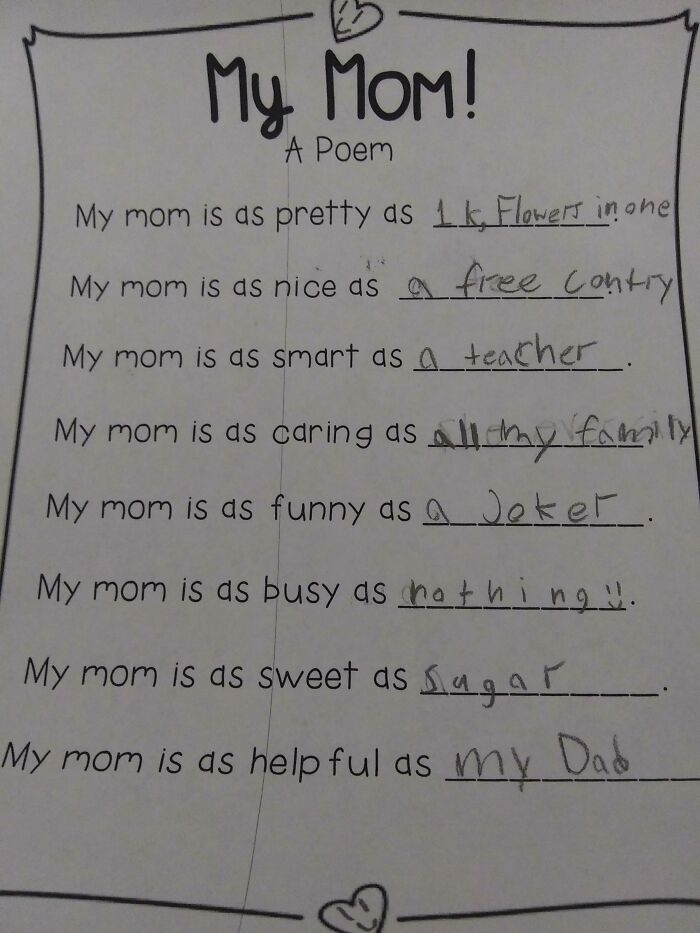 My Mom!
A Poem
My mom is as pretty as 1k, Flowers in one
My mom is as nice as a free contry
My mom is as smart as a teacher.
My mom is as caring as all my family
My mom is as funny as a Joker.
My mom is as busy as nothing :).
My mom is as sweet as sugar.
My mom is as helpful as my Dad